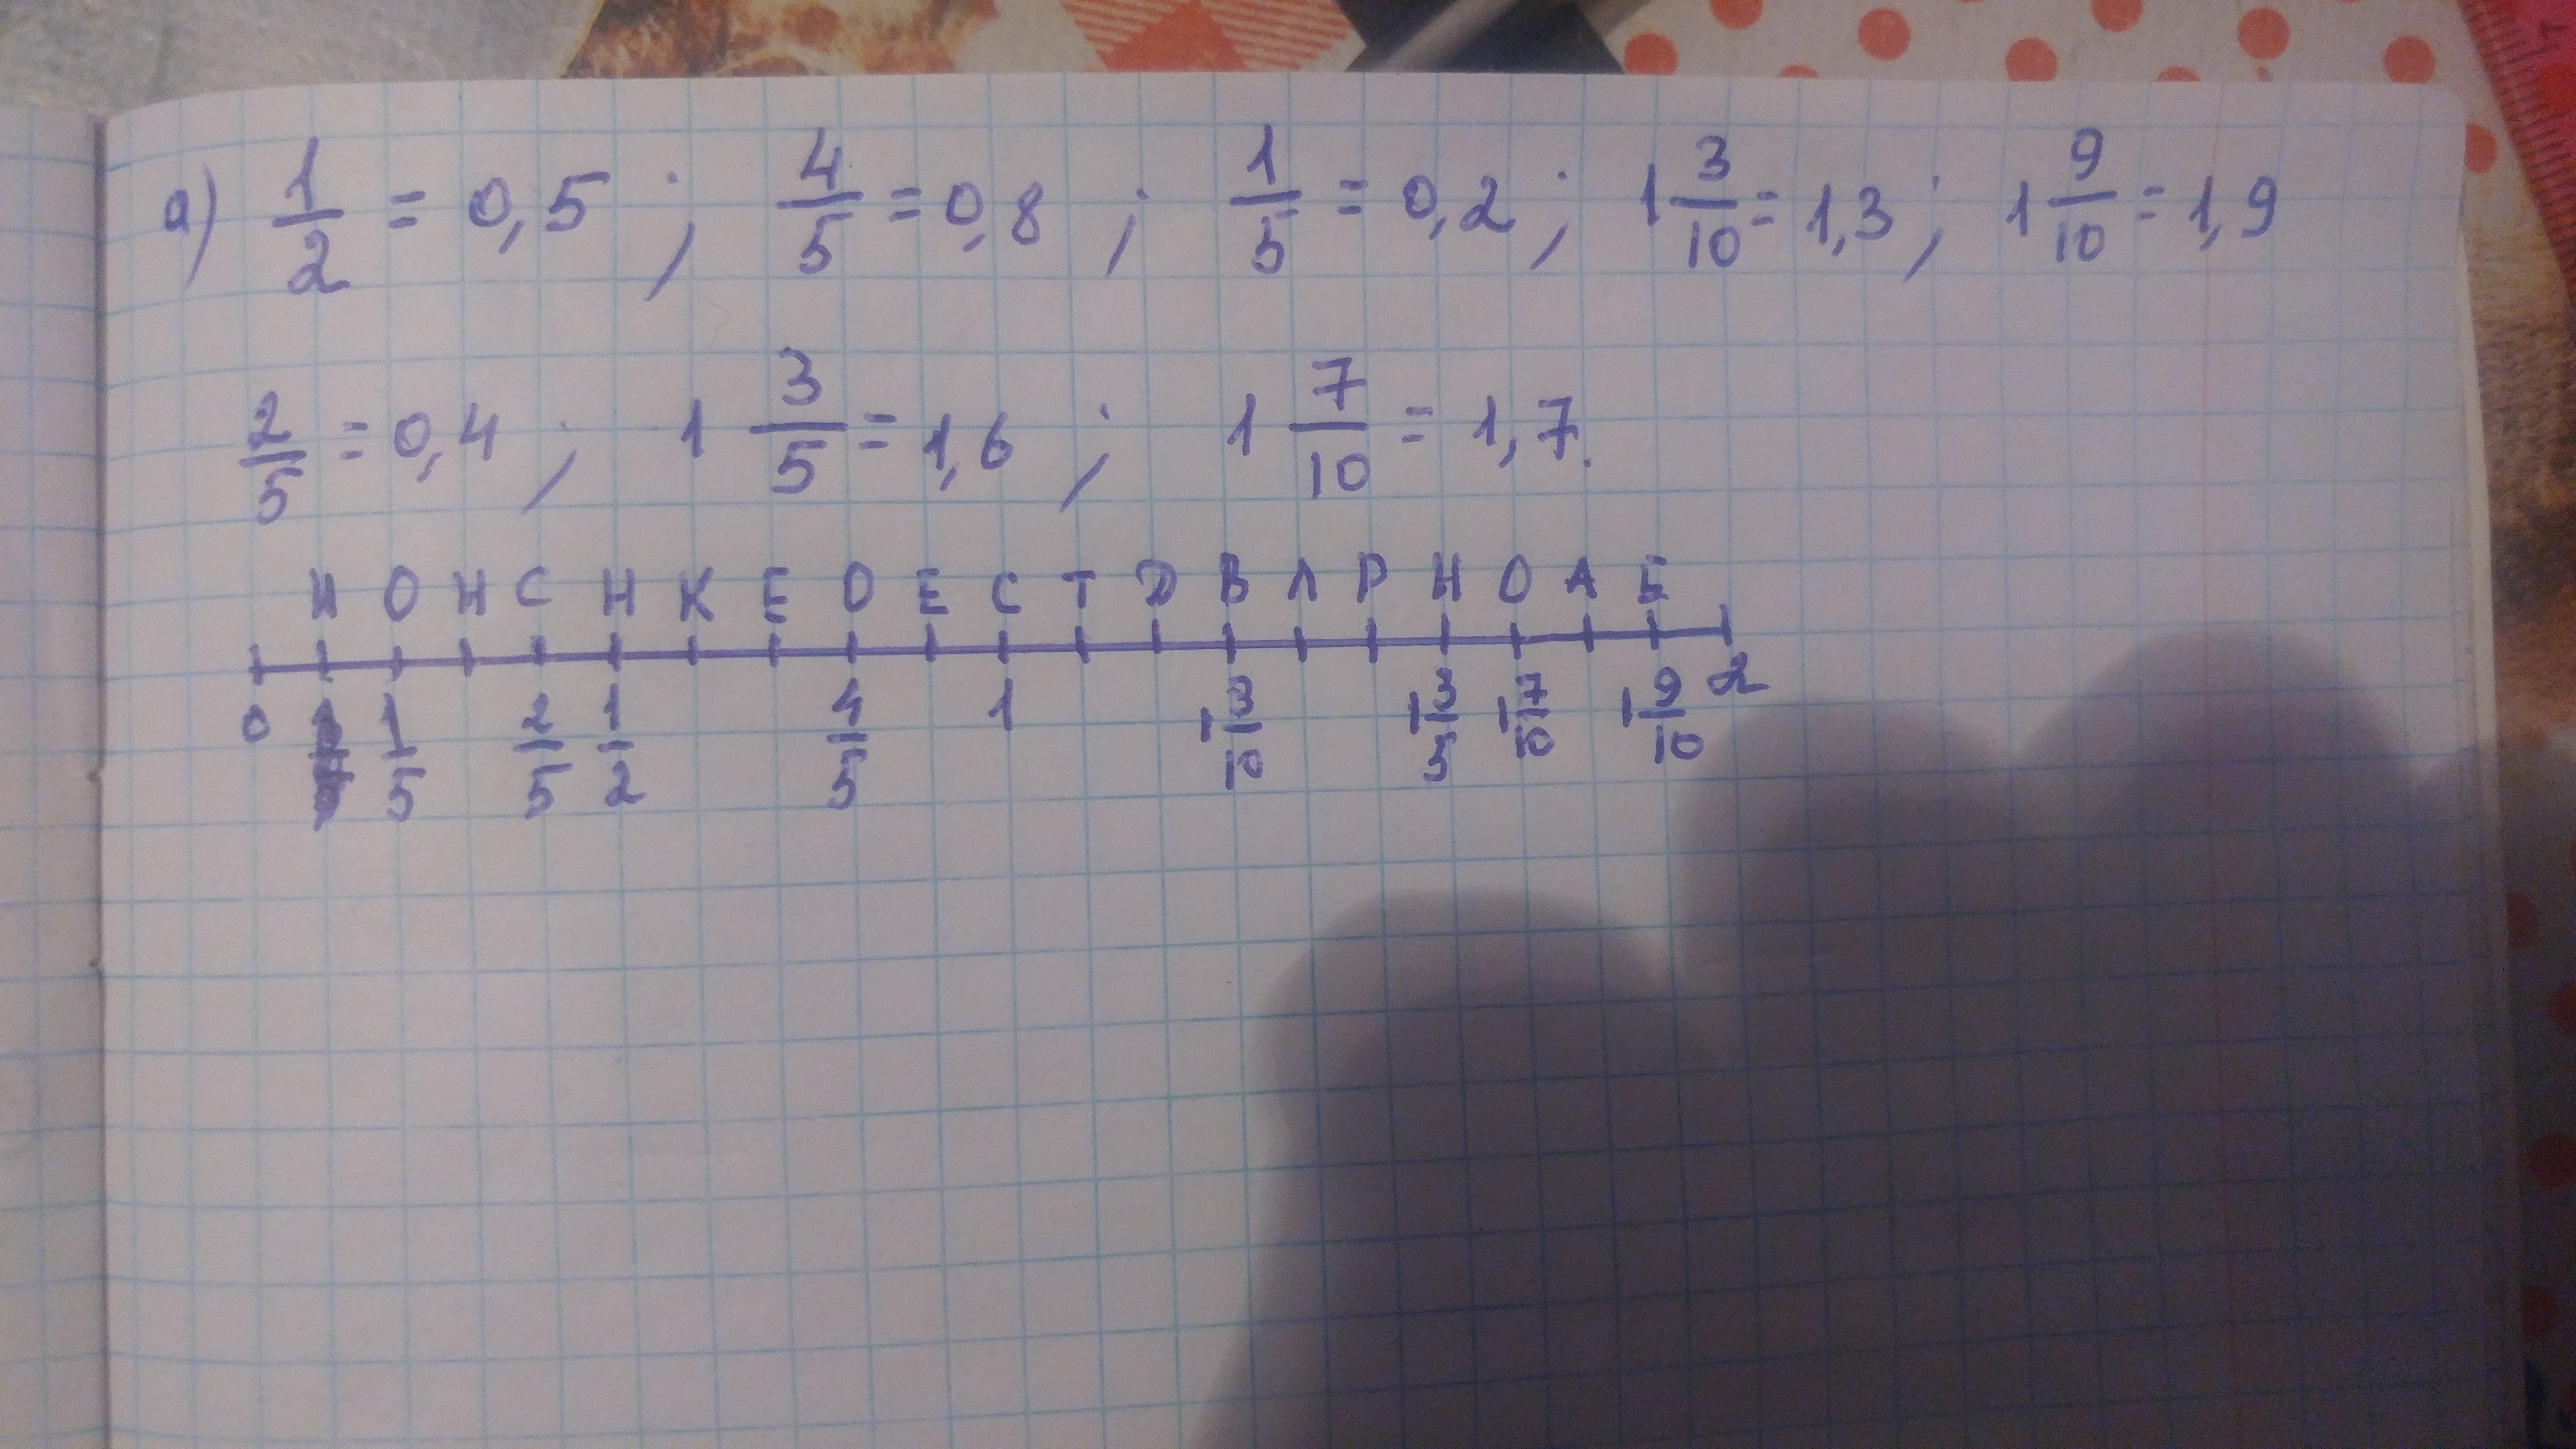 а) 1/2 = 0,5 ; 4/5 = 0,8 ; 1/5 = 0,2 ; 1 3/10 = 1,3 ; 1 9/10 = 1,9
2/5 = 0,4 ; 1 3/5 = 1,6 ; 1 7/10 = 1,7.
Н О Н С Н К Е О Е С Т D В Л Р Н О А Е
0 1/5 2/5 1/2 4/5 1 1 3/10 1 3/5 1 7/10 1 9/10 2